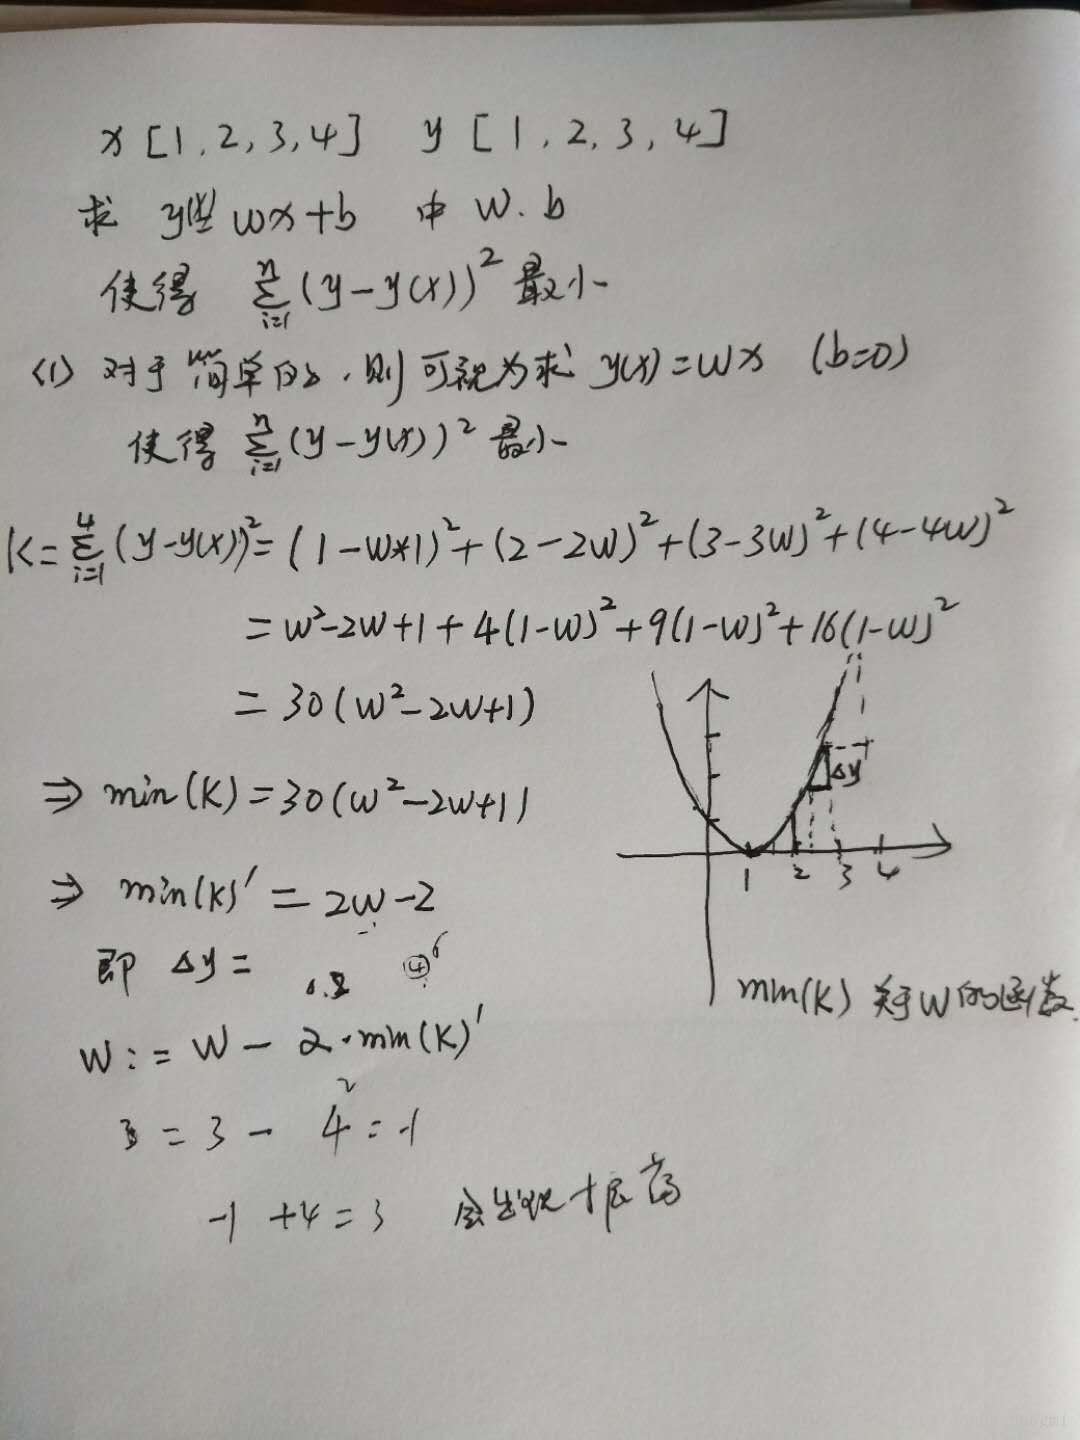 x [1, 2, 3, 4]  y [1, 2, 3, 4]
求 y(x) wx+b 中 w. b
使得 ∑_{i=1}^{n} (y-y(x))² 最小
(1) 对于简单的, 则可视为求 y(x)=wx (b=0)
使得 ∑_{i=1}^{n} (y-y(x))² 最小
K=∑_{i=1}^{4} (y-y(x))²=(1-w*1)²+(2-2w)²+(3-3w)²+(4-4w)²
=w²-2w+1+4(1-w)²+9(1-w)²+16(1-w)²
=30(w²-2w+1)
⇒ min(K)=30(w²-2w+1)
⇒ min(K)'=2w-2
即 Δy=
w:=w-2·min(K)'
3=3-4=-1
-1+4=3 会出现
Δy
1 2 3 4
min(K) 关于w的函数.